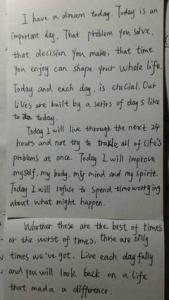 I have a dream today. Today is an
important day. That problem you solve,
that decision you make, that time
you enjoy can shape your whole life.
Today and each day, is crucial. Our
lives are built by a series of days like
today.
Today I will live through the next 24
hours and not try to tackle all of life's
problems at once. Today I will improve
myself, my body, my mind and my spirit.
Today I will refuse to spend time worrying
about what might happen.
Whether these are the best of times
or the worst of times, these are only
times we've got. Live each day fully
and you will look back on a life
that made a difference.